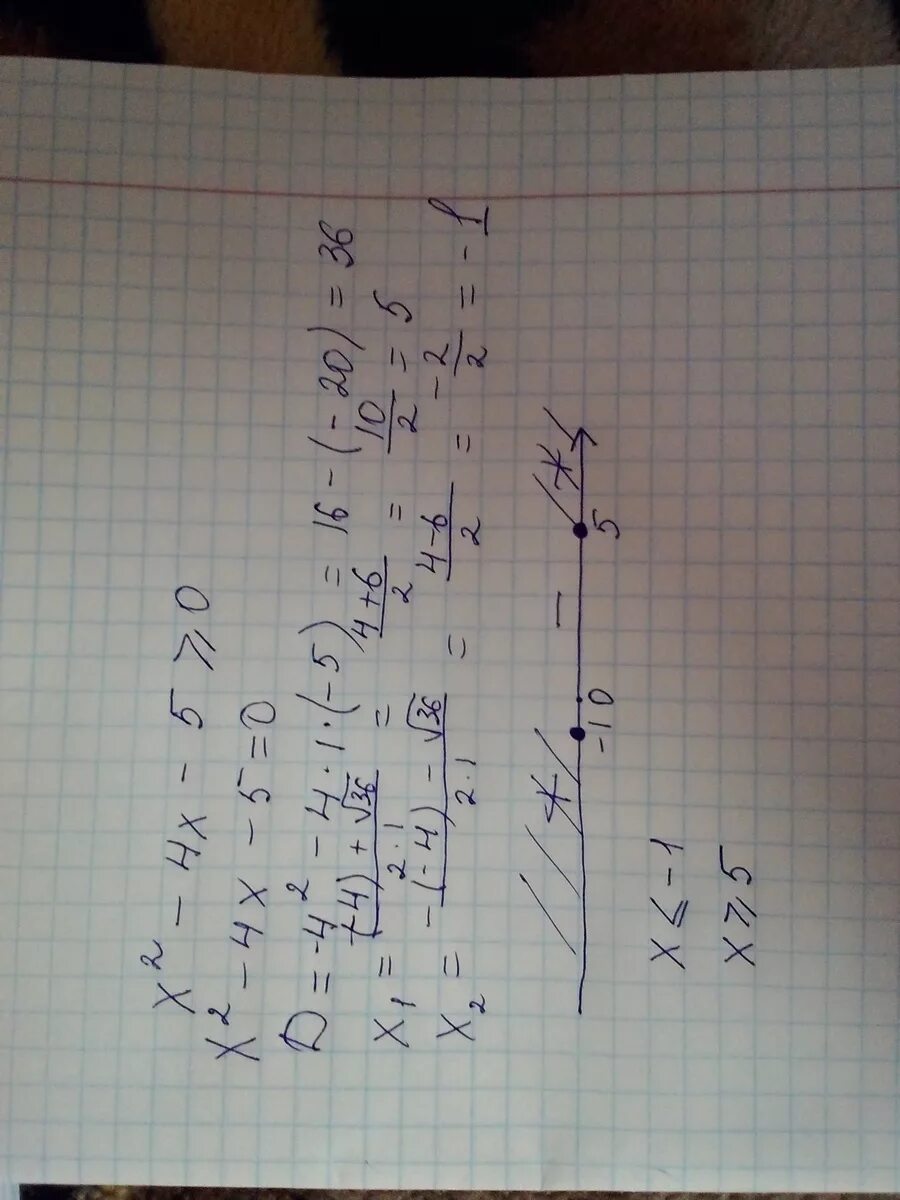 x² - 4x - 5 ⩾ 0
x² - 4x - 5 = 0
D = -4² - 4·1·(-5) = 16 - (-20) = 36
x₁ = -(-4) + √36 / 2·1 = 4+6 / 2 = 10/2 = 5
x₂ = -(-4) - √36 / 2·1 = 4-6 / 2 = -2/2 = -1
+ − +
-1 0 5
x ≤ -1
x ⩾ 5